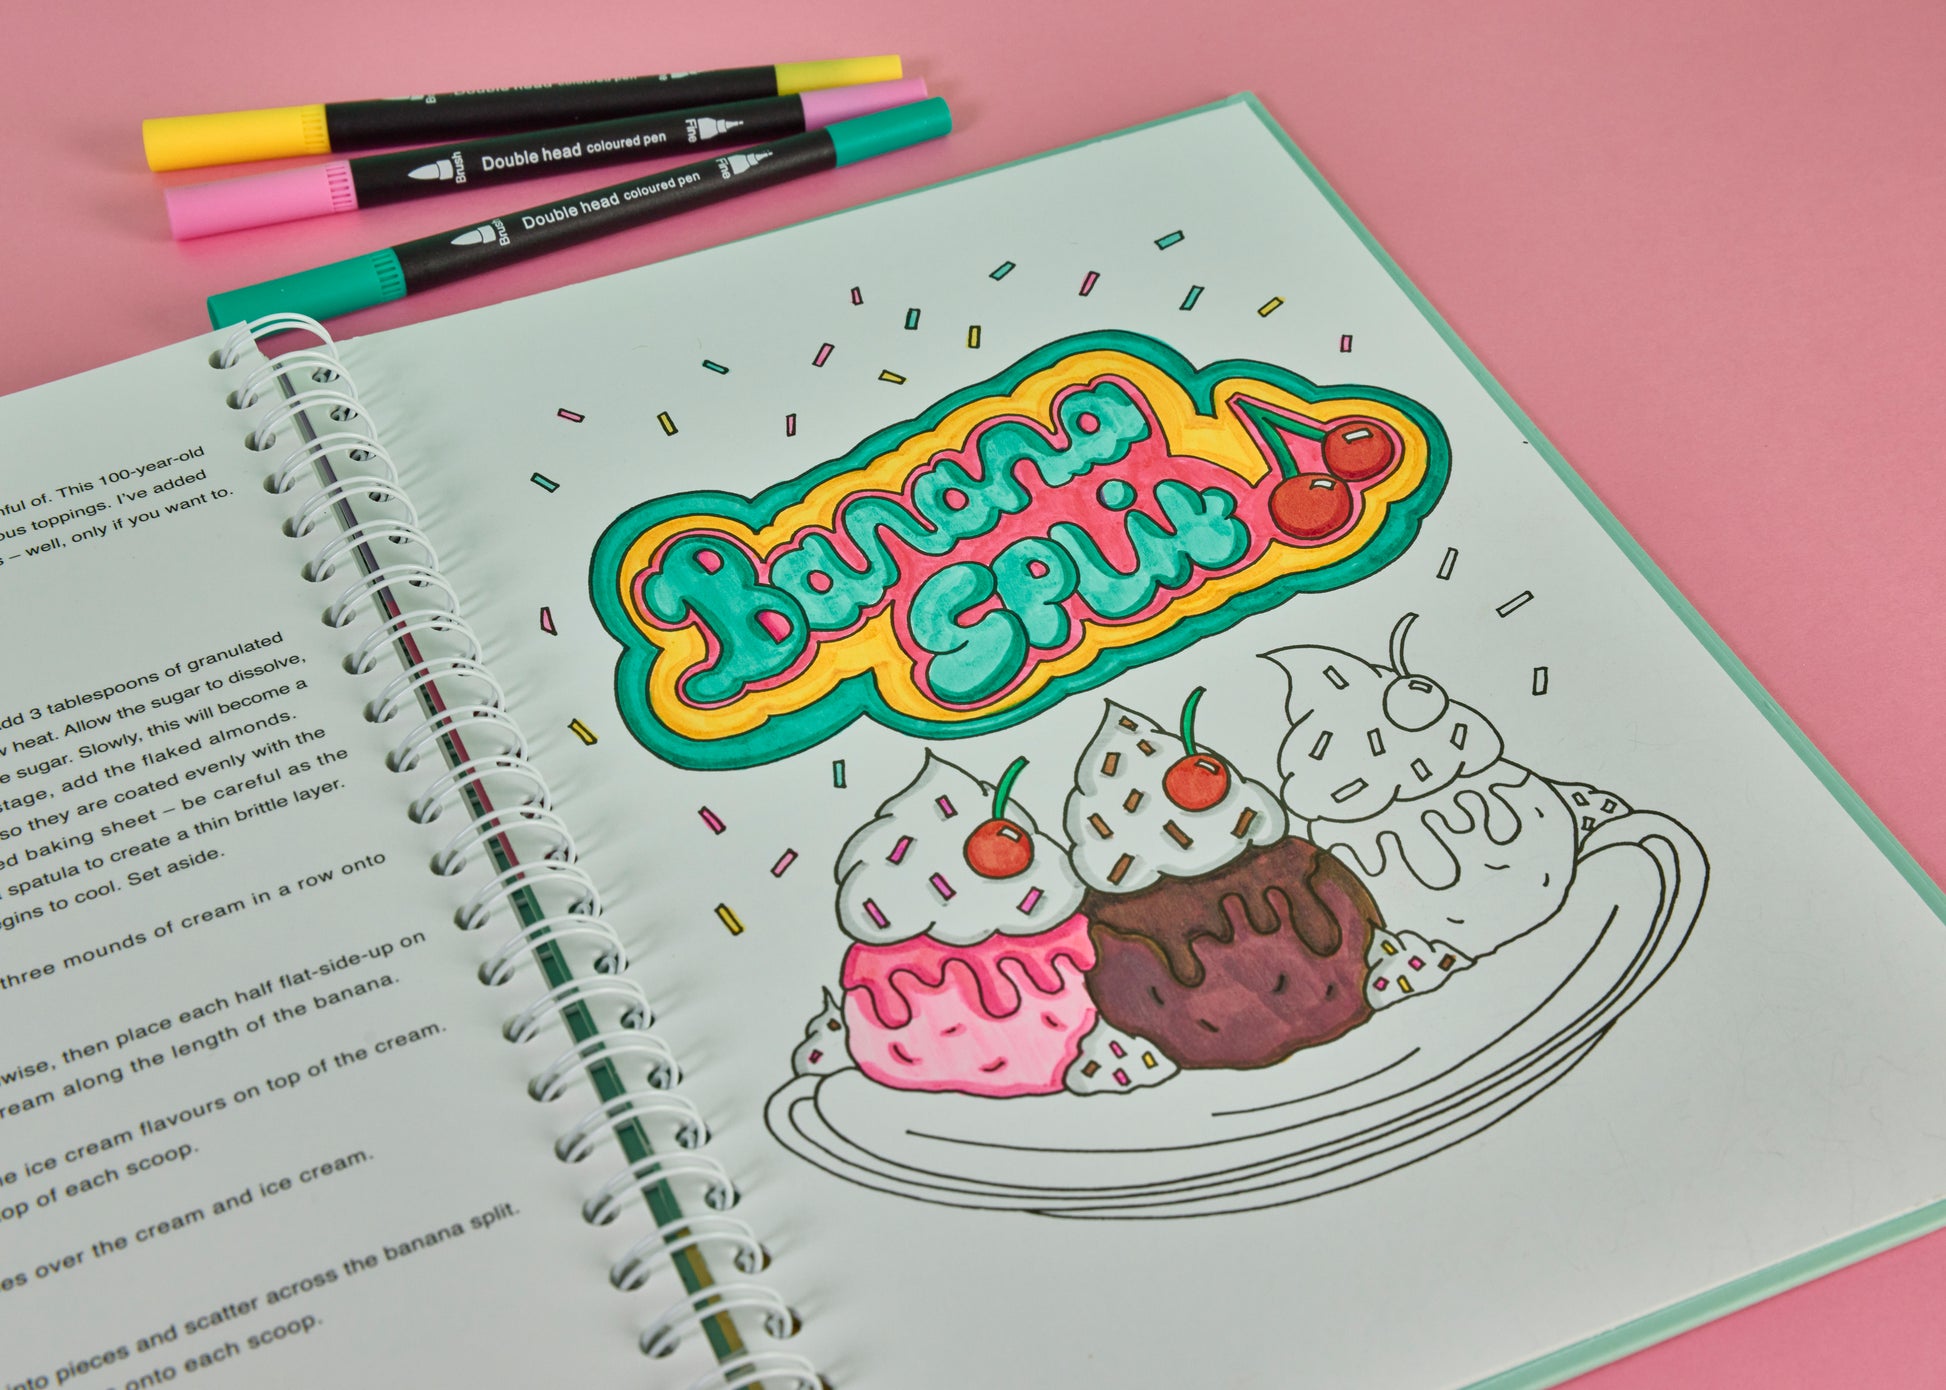 Double head coloured pen
Brush
Double head coloured pen
Fine
Brush
Double head coloured pen
Fine
of. This 100-year-old
toppings. I've added
– well, only if you want to.
3 tablespoons of granulated
heat. Allow the sugar to dissolve,
sugar. Slowly, this will become a
stage, add the flaked almonds.
so they are coated evenly with the
baking sheet – be careful as the
spatula to create a thin brittle layer.
to cool. Set aside.
three mounds of cream in a row onto
then place each half flat-side-up on
along the length of the banana.
ice cream flavours on top of the cream.
of each scoop.
over the cream and ice cream.
into pieces and scatter across the banana split.
onto each scoop.
Banana
Split